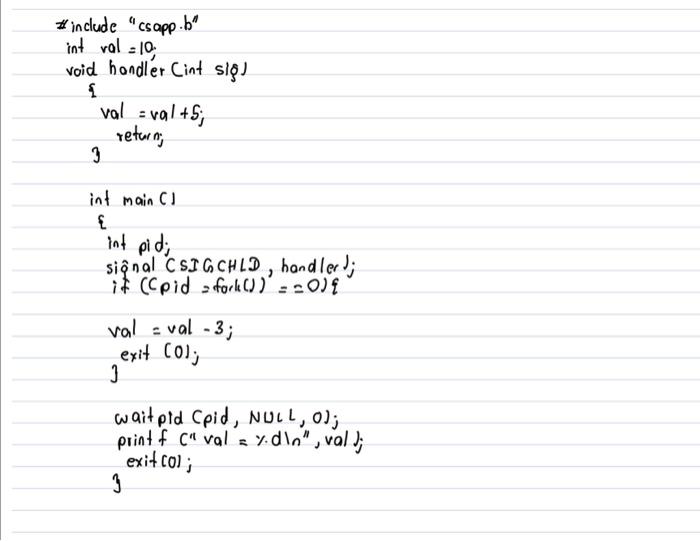 #include "csapp.h"
int val = 10;
void handler (int sig)
{
val = val + 5;
return;
}
int main ()
{
int pid;
signal (SIGCHLD, handler);
if ((pid = fork()) == 0) {
val = val - 3;
exit (0);
}
waitpid (pid, NULL, 0);
printf ("val = %d\n", val);
exit (0);
}